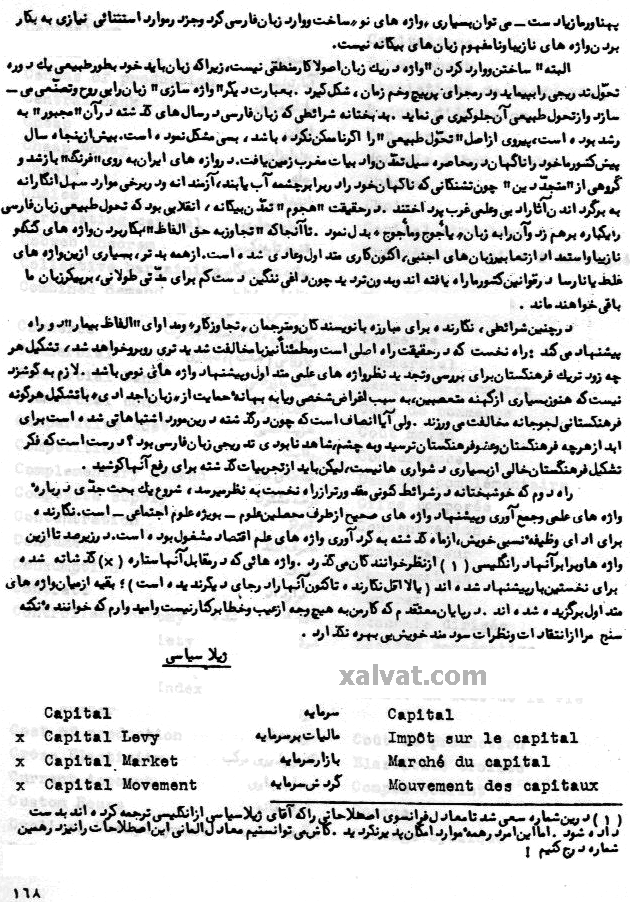 پهناور ما زیاد ست ـ می توان بسیاری "واژه های نو" ساخت و وارد زبان فارسی کرد و جز در موارد استثنائی نیازی به بکار
بردن واژه های نازیبا و نامفهوم زبان‌های بیگانه نیست.
البته "ساختن و وارد کردن" واژه در یك زبان اصولا کار منطقی نیست، زیرا که زبان باید خود بطور طبیعی یك دوره
تحوّل تدریجی را بپیماید و در مجرای پرپیچ و خم زمان، شکل گیرد. بعبارت دیگر "واژه سازی" زبان را بی روح و تصنّعی می ـ
سازد و از تحول طبیعی آن جلوگیری می نماید. بدبختانه شرائطی که زبان فارسی در سال های گذشته در آن "مجبور" به
رشد بوده است، پیروی از اصل "تحول طبیعی" را اگر ناممکن نکرده باشد، بسی مشکل نموده است. بیش از پنجاه سال
پیش کشور ما خود را ناگهان در محاصره سیل تمدّن و ادبیات مغرب زمین یافت. دروازه های ایران به روی "فرنگ" باز شد و
گروهی از "متجدّدین" چون تشنگانی که ناگهان خود را در برابر چشمه آب یابند، آزمندانه و در برخی موارد سهل انگارانه
به برگرداندن آثار ادبی و علمی غرب پرداختند. در حقیقت "هجوم" تمدّن بیگانه، انقلابی بود که تحول طبیعی زبان فارسی
را یکباره برهم زد و آن را به زبان "یأجوج و مأجوج" بدل نمود. تا آنجا که "تجاوز به حق الفاظ" بکار بردن واژه های گنگ و
نازیبا و استمداد از تعابیر زبان های اجنبی، اکنون کاری متداول و عادی شده است. از همه بدتر، بسیاری ازین واژه های
غلط یا نارسا در قوانین کشور ما راه یافته اند و بدون تردید چون داغی ننگین دست کم برای مدّتی طولانی، بر پیکر زبان ما
باقی خواهند ماند.
در چنین شرائطی، نگارنده برای مبارزه با نویسندگان و مترجمان "تجاوزکار" و مداوای "الفاظ بیمار" دو راه
پیشنهاد می کند: راه نخست که در حقیقت راه اصلی است و مطمئناً نیز با مخالفت شدیدتری روبرو خواهد شد، تشکیل هر
چه زودتر یك فرهنگستان برای بررسی و تجدید نظر واژه های علمی متداول و پیشنهاد واژه هائی نو می باشد. لازم به گوشزد
نیست که هنوز بسیاری از کهنه متعصبین، به سبب اغراض شخصی و یا به بهانهٔ حمایت از "زبان اجدادی" با تشکیل هرگونه
فرهنگستانی لجوجانه مخالفت می ورزند. ولی آیا انصاف است که چون در گذشته درین مورد اشتباهاتی شده است برای
ابد از هرچه فرهنگستان و عضو فرهنگستان ترسید و به چشم، شاهد نابودی تدریجی زبان فارسی بود؟ درست است که فکر
تشکیل فرهنگستان خالی از بسیاری دشواری ها نیست، لیکن باید از تجربیات گذشته برای رفع آنها کوشید.
راه دوم که خوشبختانه در شرائط کنونی مقدورتر از راه نخست به نظر میرسد، شروع یك بحث جدّی دربارهٔ
واژه های علمی و جمع آوری و پیشنهاد واژه های صحیح از طرف محصلین علوم ـ بویژه علوم اجتماعی ـ است. نگارنده
برای ادای وظیفهٔ نسبی خویش، از ماه گذشته به گردآوری واژه های علم اقتصاد مشغول بوده است. در زیر صد تا ازین
واژه ها و برابر آنها در انگلیسی (۱) از نظر خوانندگان می گذرد. واژه هائی که در مقابل آنها ستاره (×) گذاشته شده
برای نخستین بار پیشنهاد شده اند (یا لااقل نگارنده تاکنون آنها را در جای دیگر ندیده است)؛ بقیه از میان واژه های
متداول برگزیده شده اند. در پایان معتقدم که کار من به هیچ وجه از عیب و خطا برکنار نیست و امیدوارم که خوانندهٔ نکته
سنج مرا از انتقادات و نظرات سودمند خویش بی بهره نگذارد.
ژیلا سیاسی
xalvat.com
Capital سرمایه Capital
x Capital Levy مالیات بر سرمایه Impôt sur le capital
x Capital Market بازار سرمایه Marché du capital
x Capital Movement گردش سرمایه Mouvement des capitaux
(۱) درین شماره سعی شد تا معادل فرانسوی اصطلاحاتی را که آقای ژیلا سیاسی از انگلیسی ترجمه کرده اند بدست
داده شود. اما این امر در همهٔ موارد امکان پذیر نگردید. کاش می توانستیم معادل المانی این اصطلاحات را نیز در همین
شماره درج کنیم!
۱٦۸